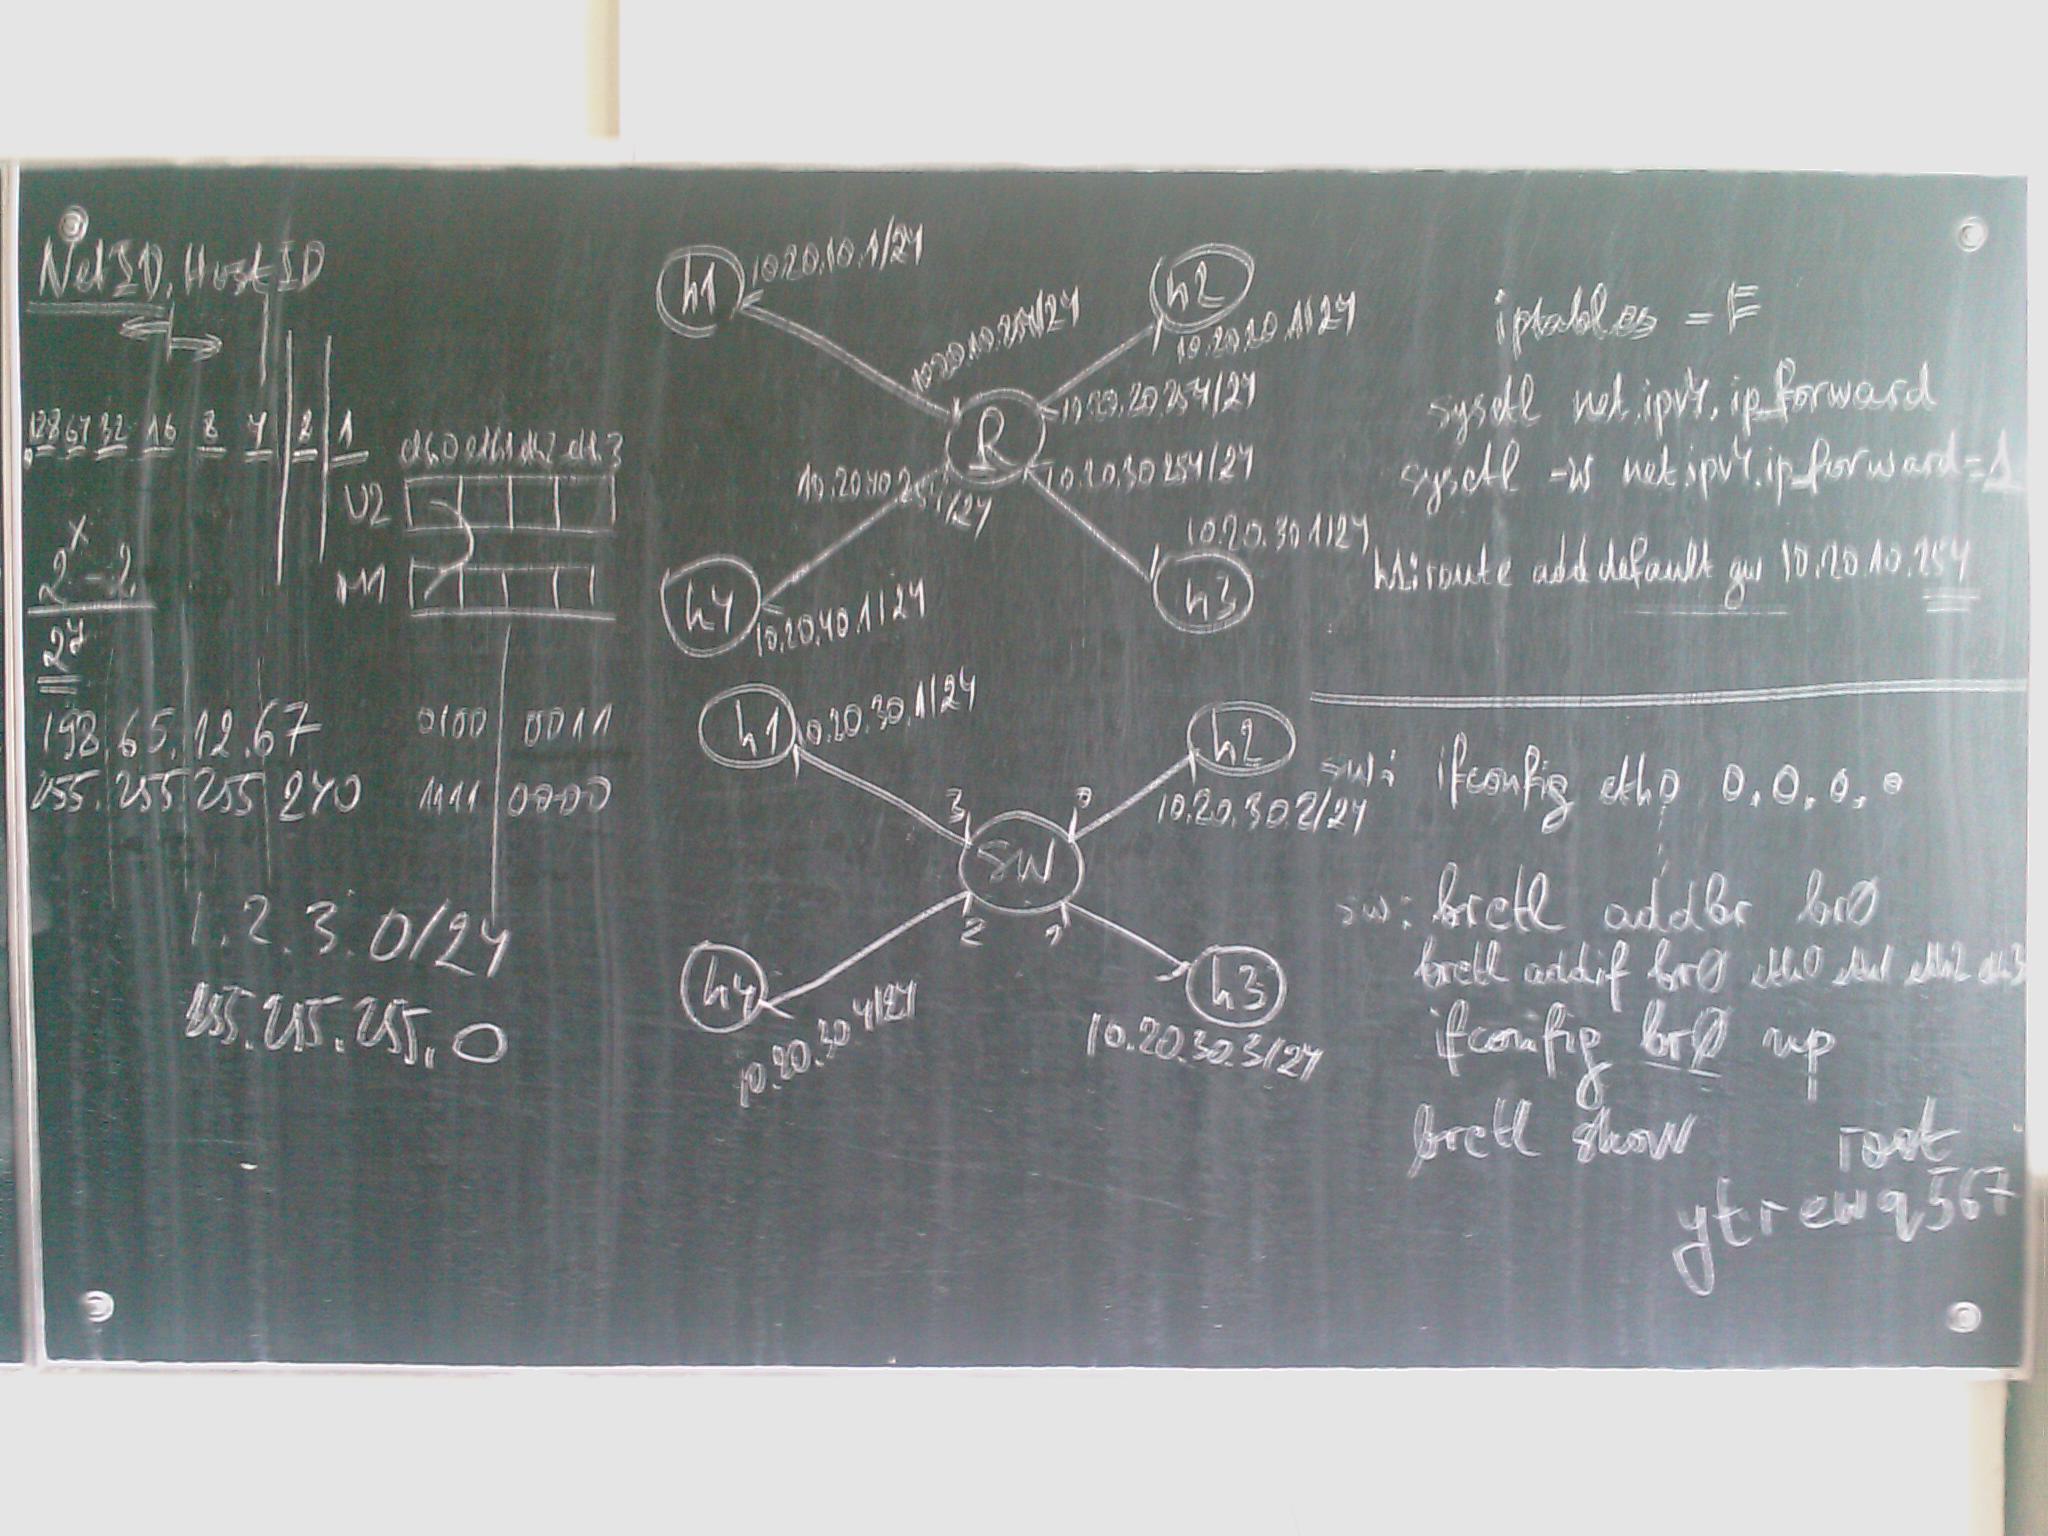 NetID, HostID
128 64 32 16 8 4 2 1
eth0 eth1 eth2 eth3
U2
M1
2^x - 2
24
198.65.12.67
0100 0011
255.255.255 240
1111 0000
1.2.3.0/24
255.255.255.0
h1 10.20.10.1/24
h2
10.20.20.1/24
10.20.10.254/24
10.20.20.254/24
R
10.20.40.254/24
10.20.30 254/24
10.20.30 1/24
h4
h3
10.20.40.1/24
h1
10.20.30.1/24
h2
10.20.30.2/24
3 0
SW
2 1
h4
h3
10.20.30 4/24
10.20.30.3/24
iptables -F
sysctl net.ipv4.ip_forward
sysctl -w net.ipv4.ip_forward=1
h1: route add default gw 10.20.10.254
sw: ifconfig eth0 0.0.0.0
sw: brctl addbr br0
brctl addif br0 eth0 eth1 eth2 eth3
ifconfig br0 up
brctl show
root
ytrewq567